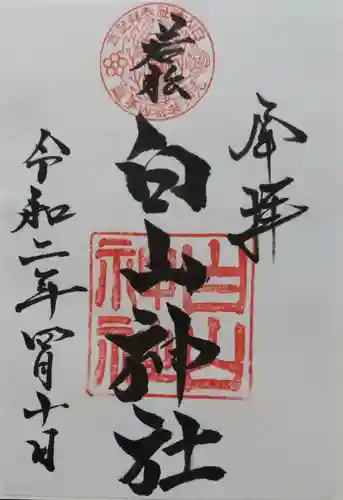 奉拝
白山神社
令和二年四月十日
白山
神社